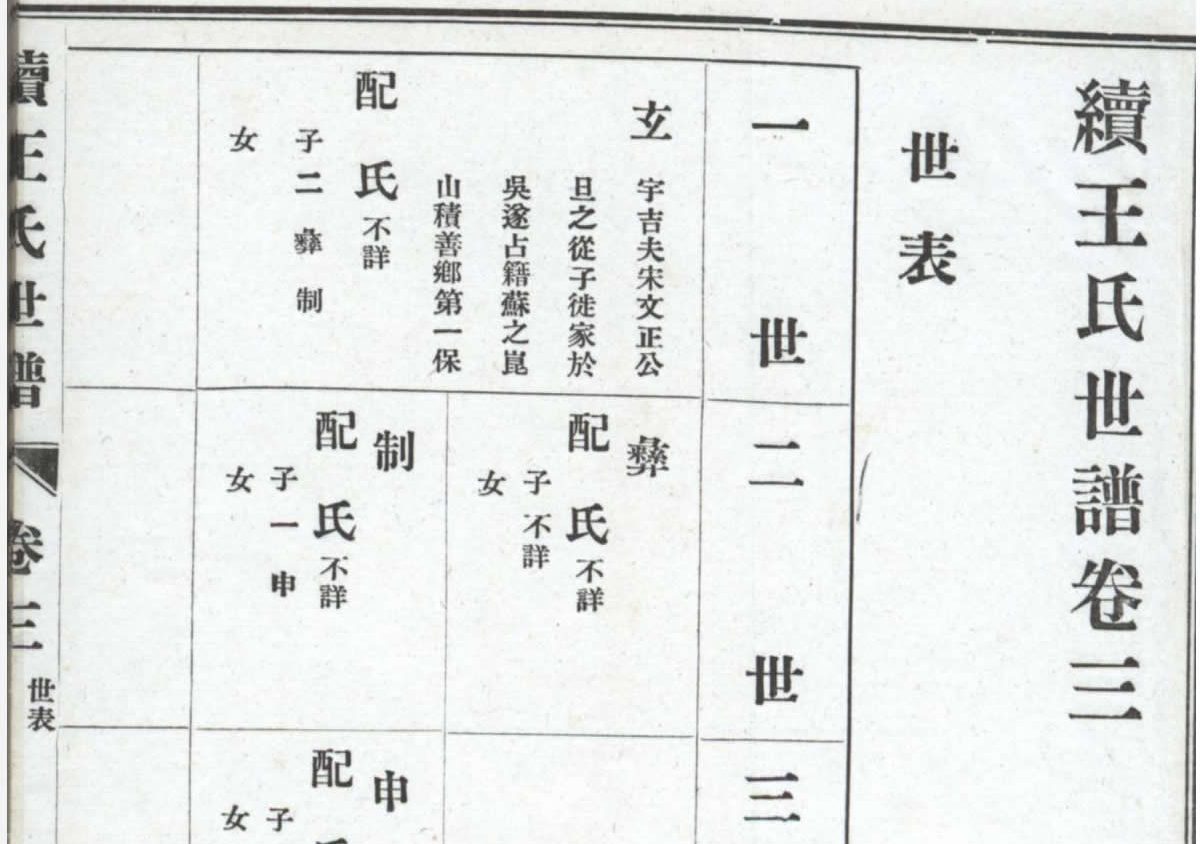 續王氏世譜卷三
世表
一世
玄
字吉夫宋文正公
旦之從子徙家於
吳遂占籍蘇之崑
山積善鄉第一保
配氏不詳
子二彝制
女
二世
彝
配氏不詳
子不詳
女
制
配氏不詳
子一申
女
三
申
配
子
女
續王氏世譜
卷三
世表